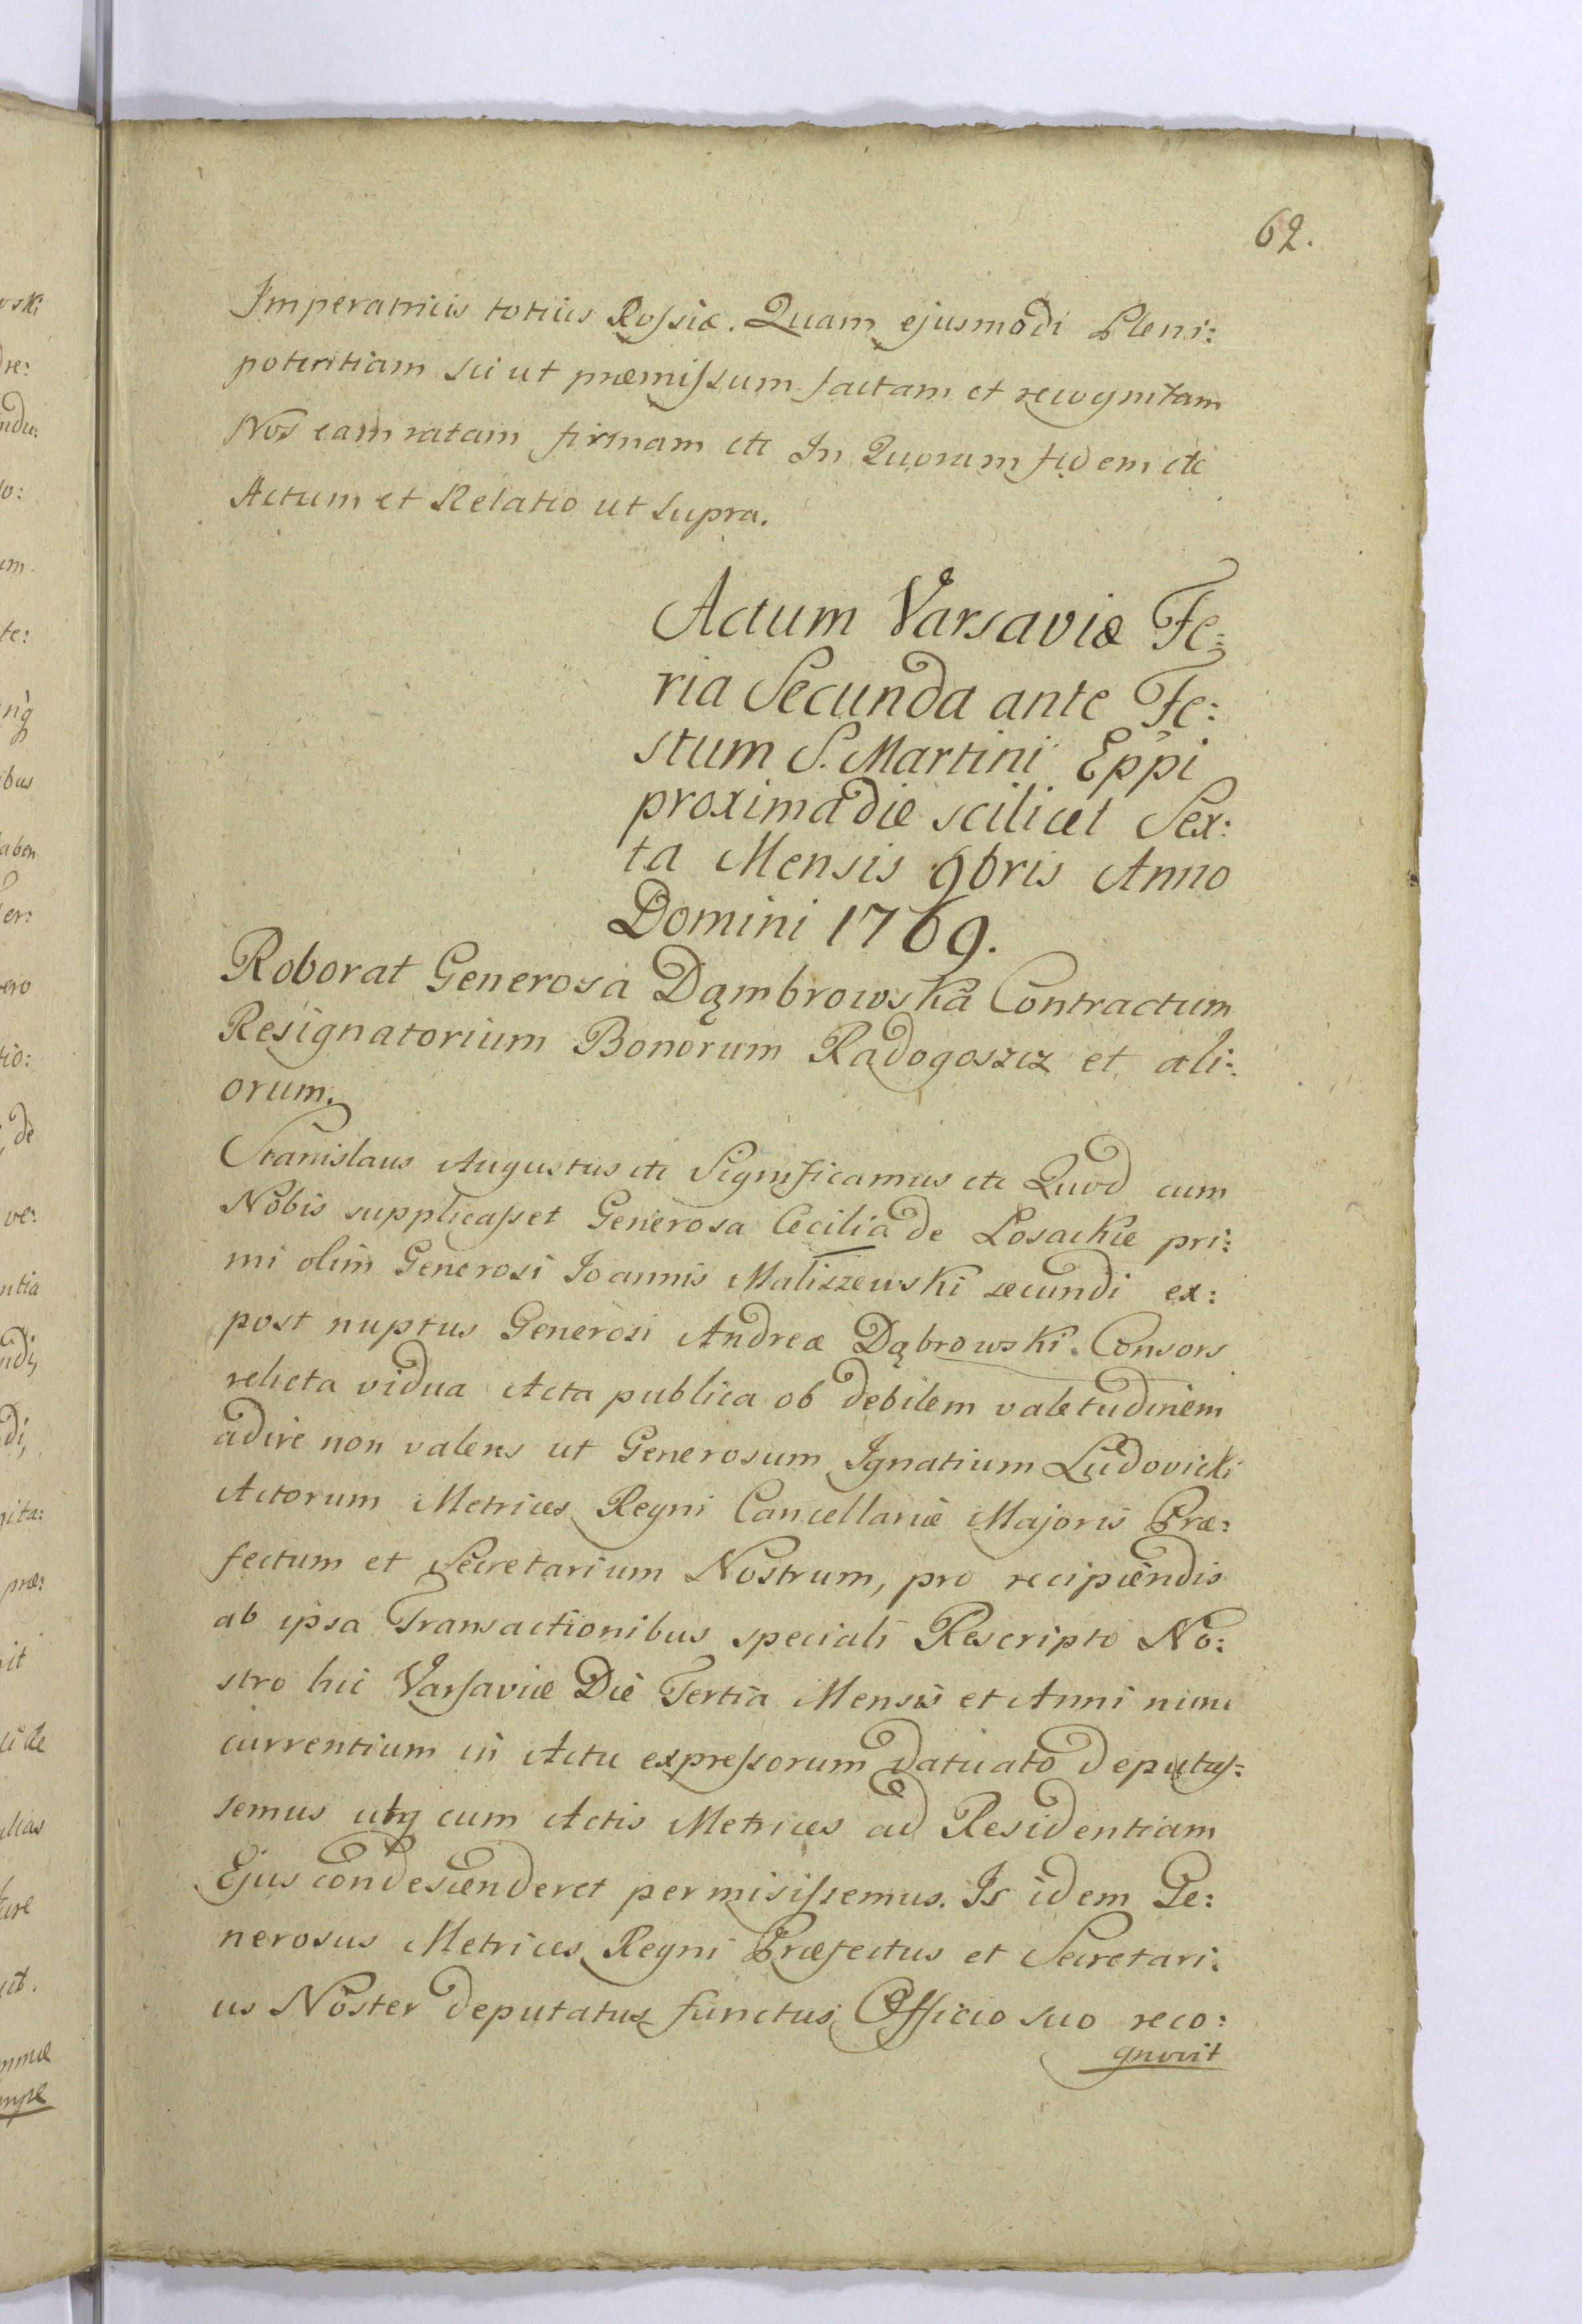 62.
Imperatricis totius Rossiæ. Quam ejusmodi Pleni:
potentiam sic ut præmissum factam et recognitam
Nos eam ratam firmam etc In Quorum fidem etc
Actum et Relatio ut supra.
Actum Varsaviæ Fe:
ria Secunda ante Fe:
stum S. Martini Eppi
proxima die scilicet Sex:
ta Mensis 9bris Anno
Domini 1769.
Roborat Generosa Dąmbrowska Contractum
Resignatorium Bonorum Radogoszcz et ali:
orum.
Stanislaus Augustus etc Significamus etc Quod cum
Nobis supplicasset Generosa Cecilia de Losackie pri:
mi olim Generosi Ioannis Maliszewski secundi ex:
post nuptus Generosi Andreæ Dąbrowski Consors
relicta vidua Acta publica ob debilem valetudinem
adire non valens ut Generosum Ignatium Ludovicki
Actorum Metrices Regni Cancellariæ Majoris Præ:
fectum et Secretarium Nostrum, pro recipiendis
ab ipsa Transactionibus speciali Rescripto No:
stro hic Varsaviæ Die Tertia Mensis et Anni nunc
currentium in Actu expressorum datuato deputas:
semus utq cum Actis Metrices ad Residentiam
Ejus condescenderet permisissemus. Is idem Ge:
nerosus Metrices Regni Præfectus et Secretari:
us Noster deputatus functus Officio suo reco:
gnovit